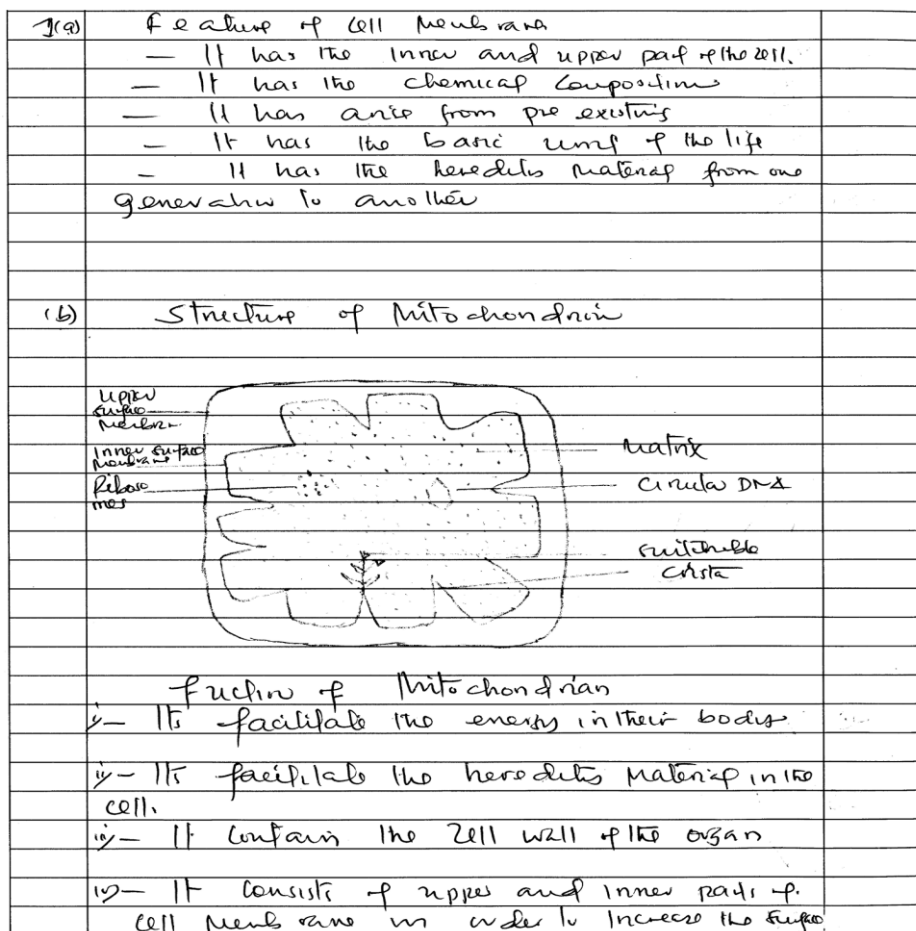 1(a) Feature of cell Membrane
— It has the Inner and upper part of the cell.
— It has the chemical Composition
— It has arise from pre existing
— It has the basic unit of the life
— It has the hereditis Material from one
generation to another
(b) Structure of Mitochondrin
upper
surface
Membran
Inner surface
Membrane
Riboso
mes
Matrix
Circular DNA
Crista
Fuction of Mitochondrian
i/— Its facilitate the energy in their body
ii/— Its facilitate the hereditis Material in the
cell.
iii/— It contain the cell wall of the organ
iv)— It consists of upper and inner parts of
cell Membrane in order to Increase the surface